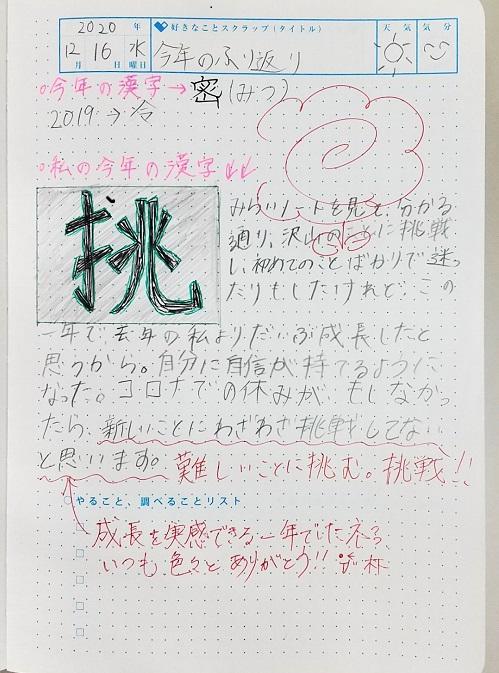 2020年
12月16日水曜日
好きなことスクラップ(タイトル)
今年のふり返り
天気
気分
○今年の漢字→密(みつ)
2019→令
○私の今年の漢字↓↓
挑
みらいノートを見ても分かる
通り、沢山のことに挑戦
し、初めてのことばかりで迷っ
たりもしたけれど、この
一年で、去年の私よりだいぶ成長したと
思うから。自分に自信が持てるように
なった。コロナでの休みが、もしなかっ
たら、新しいことにわざわざ挑戦してない
と思います。難しいことに挑む。挑戦!!
やること、調べることリスト
成長を実感できる一年でしたネ。
いつも色々とありがとう!!
林